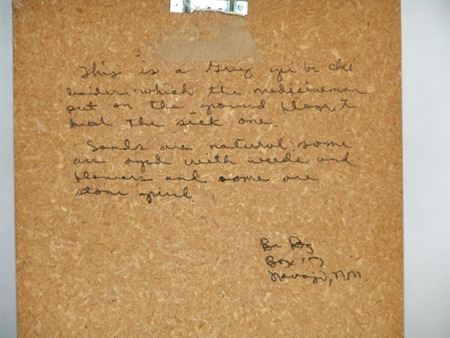 This is a Grey ye be che
which the medicineman
put on the ground floor to
heal the sick one.
Sands are natural, some
are dyed with weeds and
flowers and some are
stone
Box 17
Navajo, NM